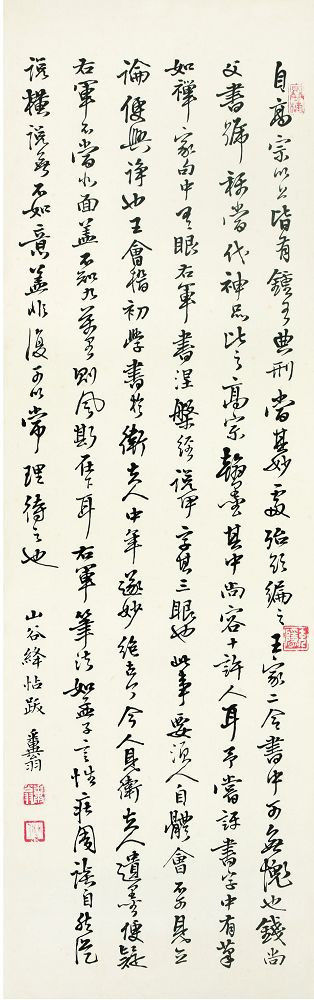 自高宗以上皆有鍾王典刑當其妙處殆欲編之王家二令書中可無愧也錢尚
父書號稱當代神品比之高宗翰墨其中尚容十許人耳予嘗評書字中有筆
如禪家句中有眼右軍書涅槃經說甲字具三眼也此事要須人自體會不見立
論便興諍也王會稽初學書於衛夫人中年遂妙絕古今人見衛夫人遺墨便疑
右軍不當北面蓋不知九萬里則風斯在下耳右軍筆法如孟子言性莊周談自然從
說橫說無不如意蓋非復可以常理待之也
山谷絳帖跋 翁